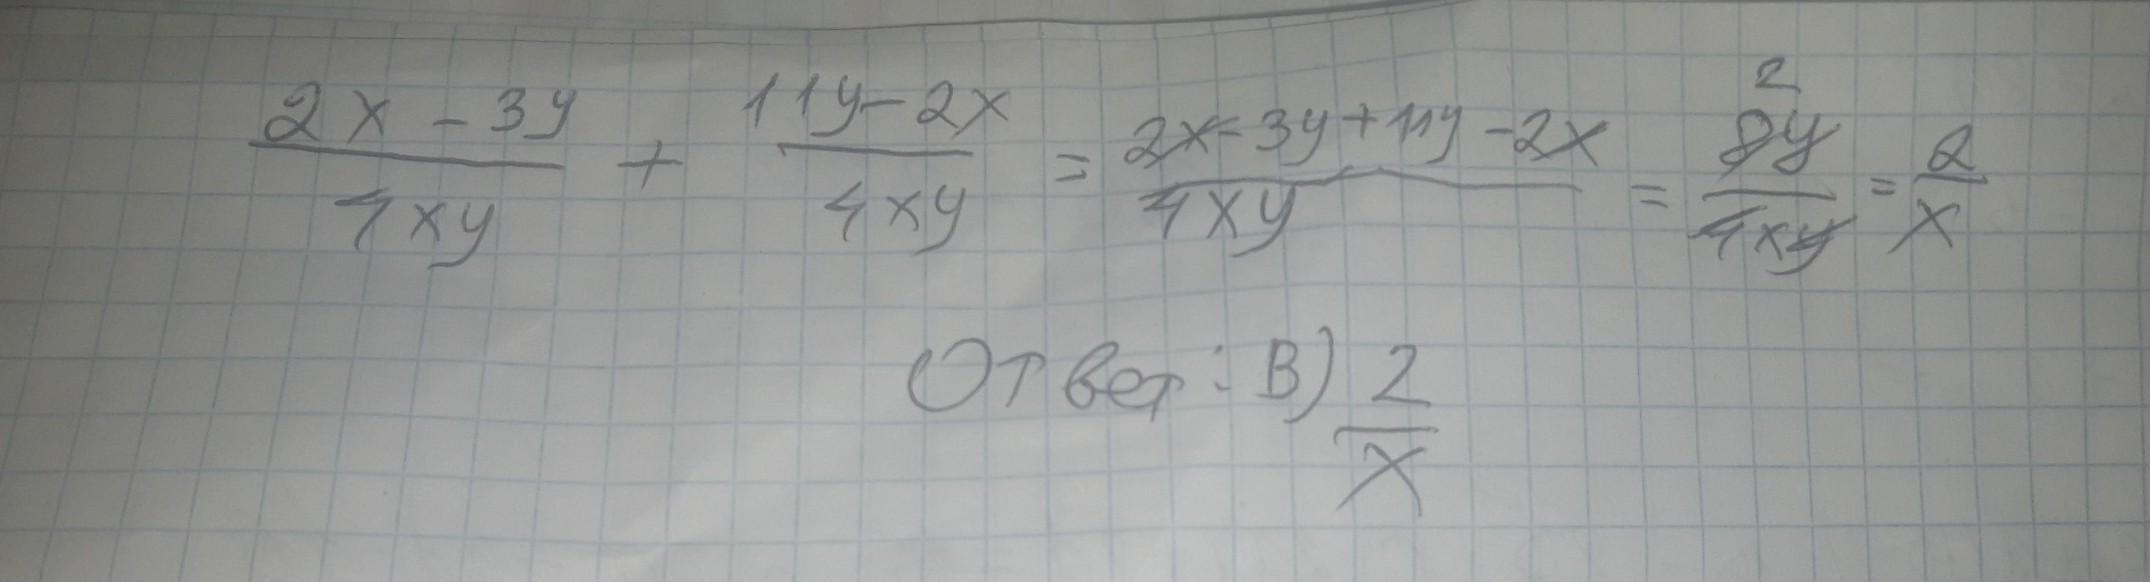 (2x - 3y)/(4xy) + (11y - 2x)/(4xy) = (2x - 3y + 11y - 2x)/(4xy) = 2 (8y)/(4xy) = 2/x
Ответ: В) 2/x